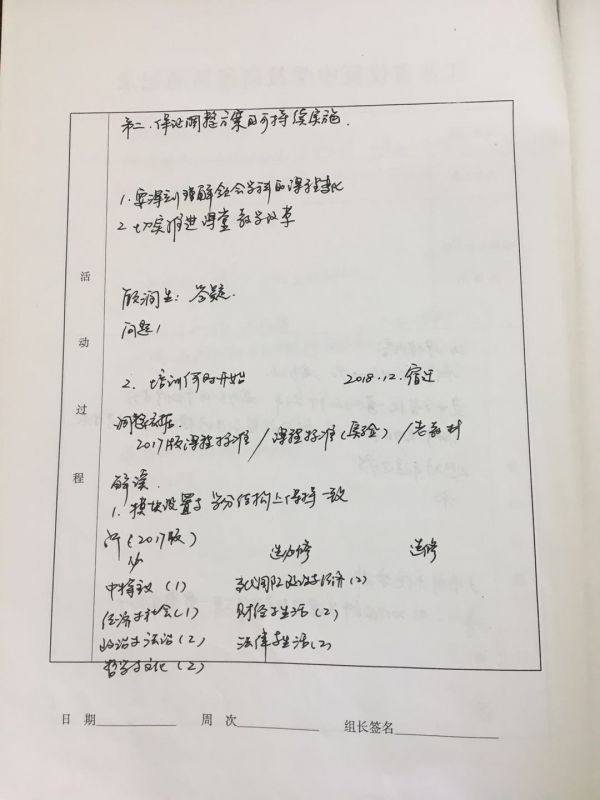 第二、保证调整方案的可持续实施.
1. 要得到理解社会学科的课程变化
2 切实推进课堂教学改革
顾润生: 答疑.
问题1
2. 培训何时开始 2018.12.宿迁
调整依据.
2017版课程标准/课程标准(实验)/老教材
解读.
1. 模块设置与学分结构上保持一致
(2017版)
选必修 选修
中特社义(1) 当代国际政治与经济(2)
经济与社会(1) 财经与生活(2)
政治与法治(2) 法律与生活(2)
哲学与文化(2)
活动过程
日 期 周 次 组长签名